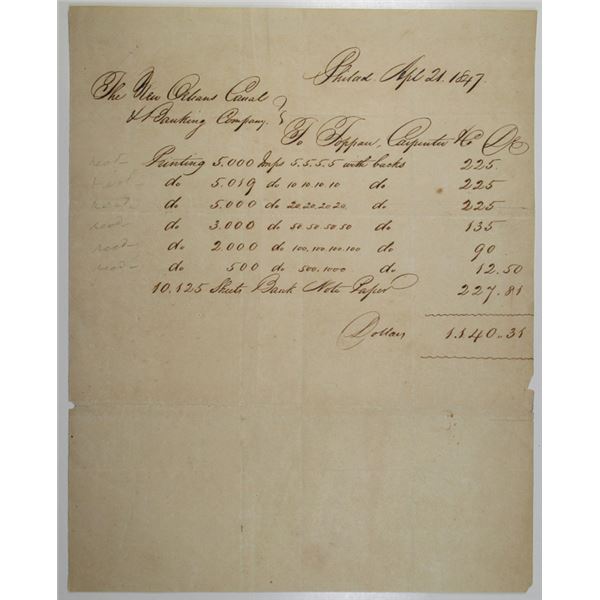 Philad Apl 21. 1847.
The New Orleans Canal
& Banking Company.
To Toppan, Carpenter & Co Dr
recd Printing 5.000 Imps 5.5.5.5 with backs 225.
recd do 5.019 do 10.10.10.10 do 225
recd do 5.000 do 20.20.20.20. do 225
recd do 3.000 do 50.50.50.50 do 135
recd do 2.000 do 100.100.100.100 do 90
recd do 500 do 500.1000 do 12.50
10.125 Sheets Bank Note Paper 227.81
Dollars 1.140..31